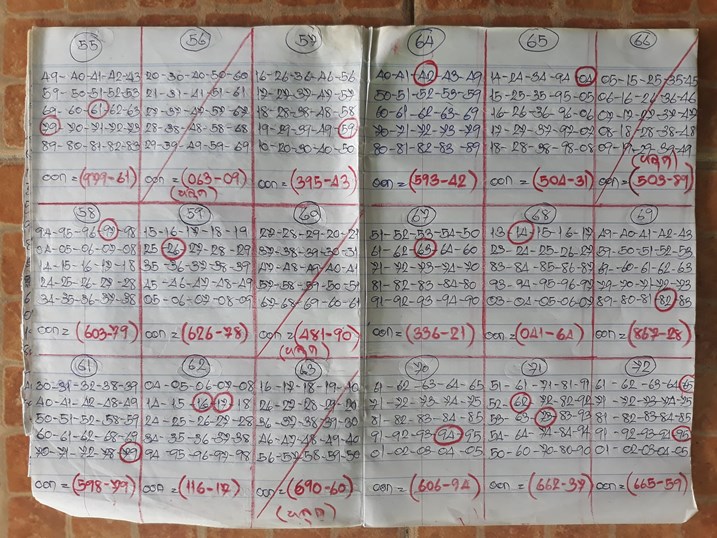 55
49-40-41-42-43
59-50-51-52-53
69-60-61-62-63
79-70-71-72-73
89-80-81-82-83
ออก = (979-61)
56
20-30-40-50-60
21-31-41-51-61
27-37-47-57-67
28-38-48-58-68
29-39-49-59-69
ออก = (063-09)
57
16-26-36-46-56
17-27-37-47-57
18-28-38-48-58
19-29-39-49-59
10-20-30-40-50
ออก = (395-43)
58
94-95-96-97-98
04-05-06-07-08
14-15-16-17-18
24-25-26-27-28
34-35-36-37-38
ออก = (603-79)
59
15-16-17-18-19
25-26-27-28-29
35-36-37-38-39
45-46-47-48-49
05-06-07-08-09
ออก = (626-78)
60
27-28-29-20-21
37-38-39-30-31
47-48-49-40-41
57-58-59-50-51
67-68-69-60-61
ออก = (481-90)
61
30-31-32-38-39
40-41-42-48-49
50-51-52-58-59
60-61-62-68-69
70-71-72-78-79
ออก = (598-79)
62
04-05-06-07-08
14-15-16-17-18
24-25-26-27-28
34-35-36-37-38
94-95-96-97-98
ออก = (116-17)
63
16-17-18-19-10
26-27-28-29-20
36-37-38-39-30
46-47-48-49-40
56-57-58-59-50
ออก = (690-60)
64
40-41-42-43-49
50-51-52-53-59
60-61-62-63-69
70-71-72-73-79
80-81-82-83-89
ออก = (593-42)
65
14-24-34-94-04
15-25-35-95-05
16-26-36-96-06
17-27-37-97-07
18-28-38-98-08
ออก = (504-31)
66
05-15-25-35-45
06-16-26-36-46
07-17-27-37-47
08-18-28-38-48
09-19-29-39-49
ออก = (503-89)
67
51-52-53-54-50
61-62-63-64-60
71-72-73-74-70
81-82-83-84-80
91-92-93-94-90
ออก = (336-21)
68
13-14-15-16-17
23-24-25-26-27
83-84-85-86-87
93-94-95-96-97
03-04-05-06-07
ออก = (041-64)
69
49-40-41-42-43
59-50-51-52-53
69-60-61-62-63
79-70-71-72-73
89-80-81-82-83
ออก = (867-28)
70
61-62-63-64-65
71-72-73-74-75
81-82-83-84-85
91-92-93-94-95
01-02-03-04-05
ออก = (606-94)
71
51-61-71-81-91
52-62-72-82-92
53-63-73-83-93
54-64-74-84-94
50-60-70-80-90
ออก = (662-37)
72
61-62-63-64-65
71-72-73-74-75
81-82-83-84-85
91-92-93-94-95
01-02-03-04-05
ออก = (665-59)